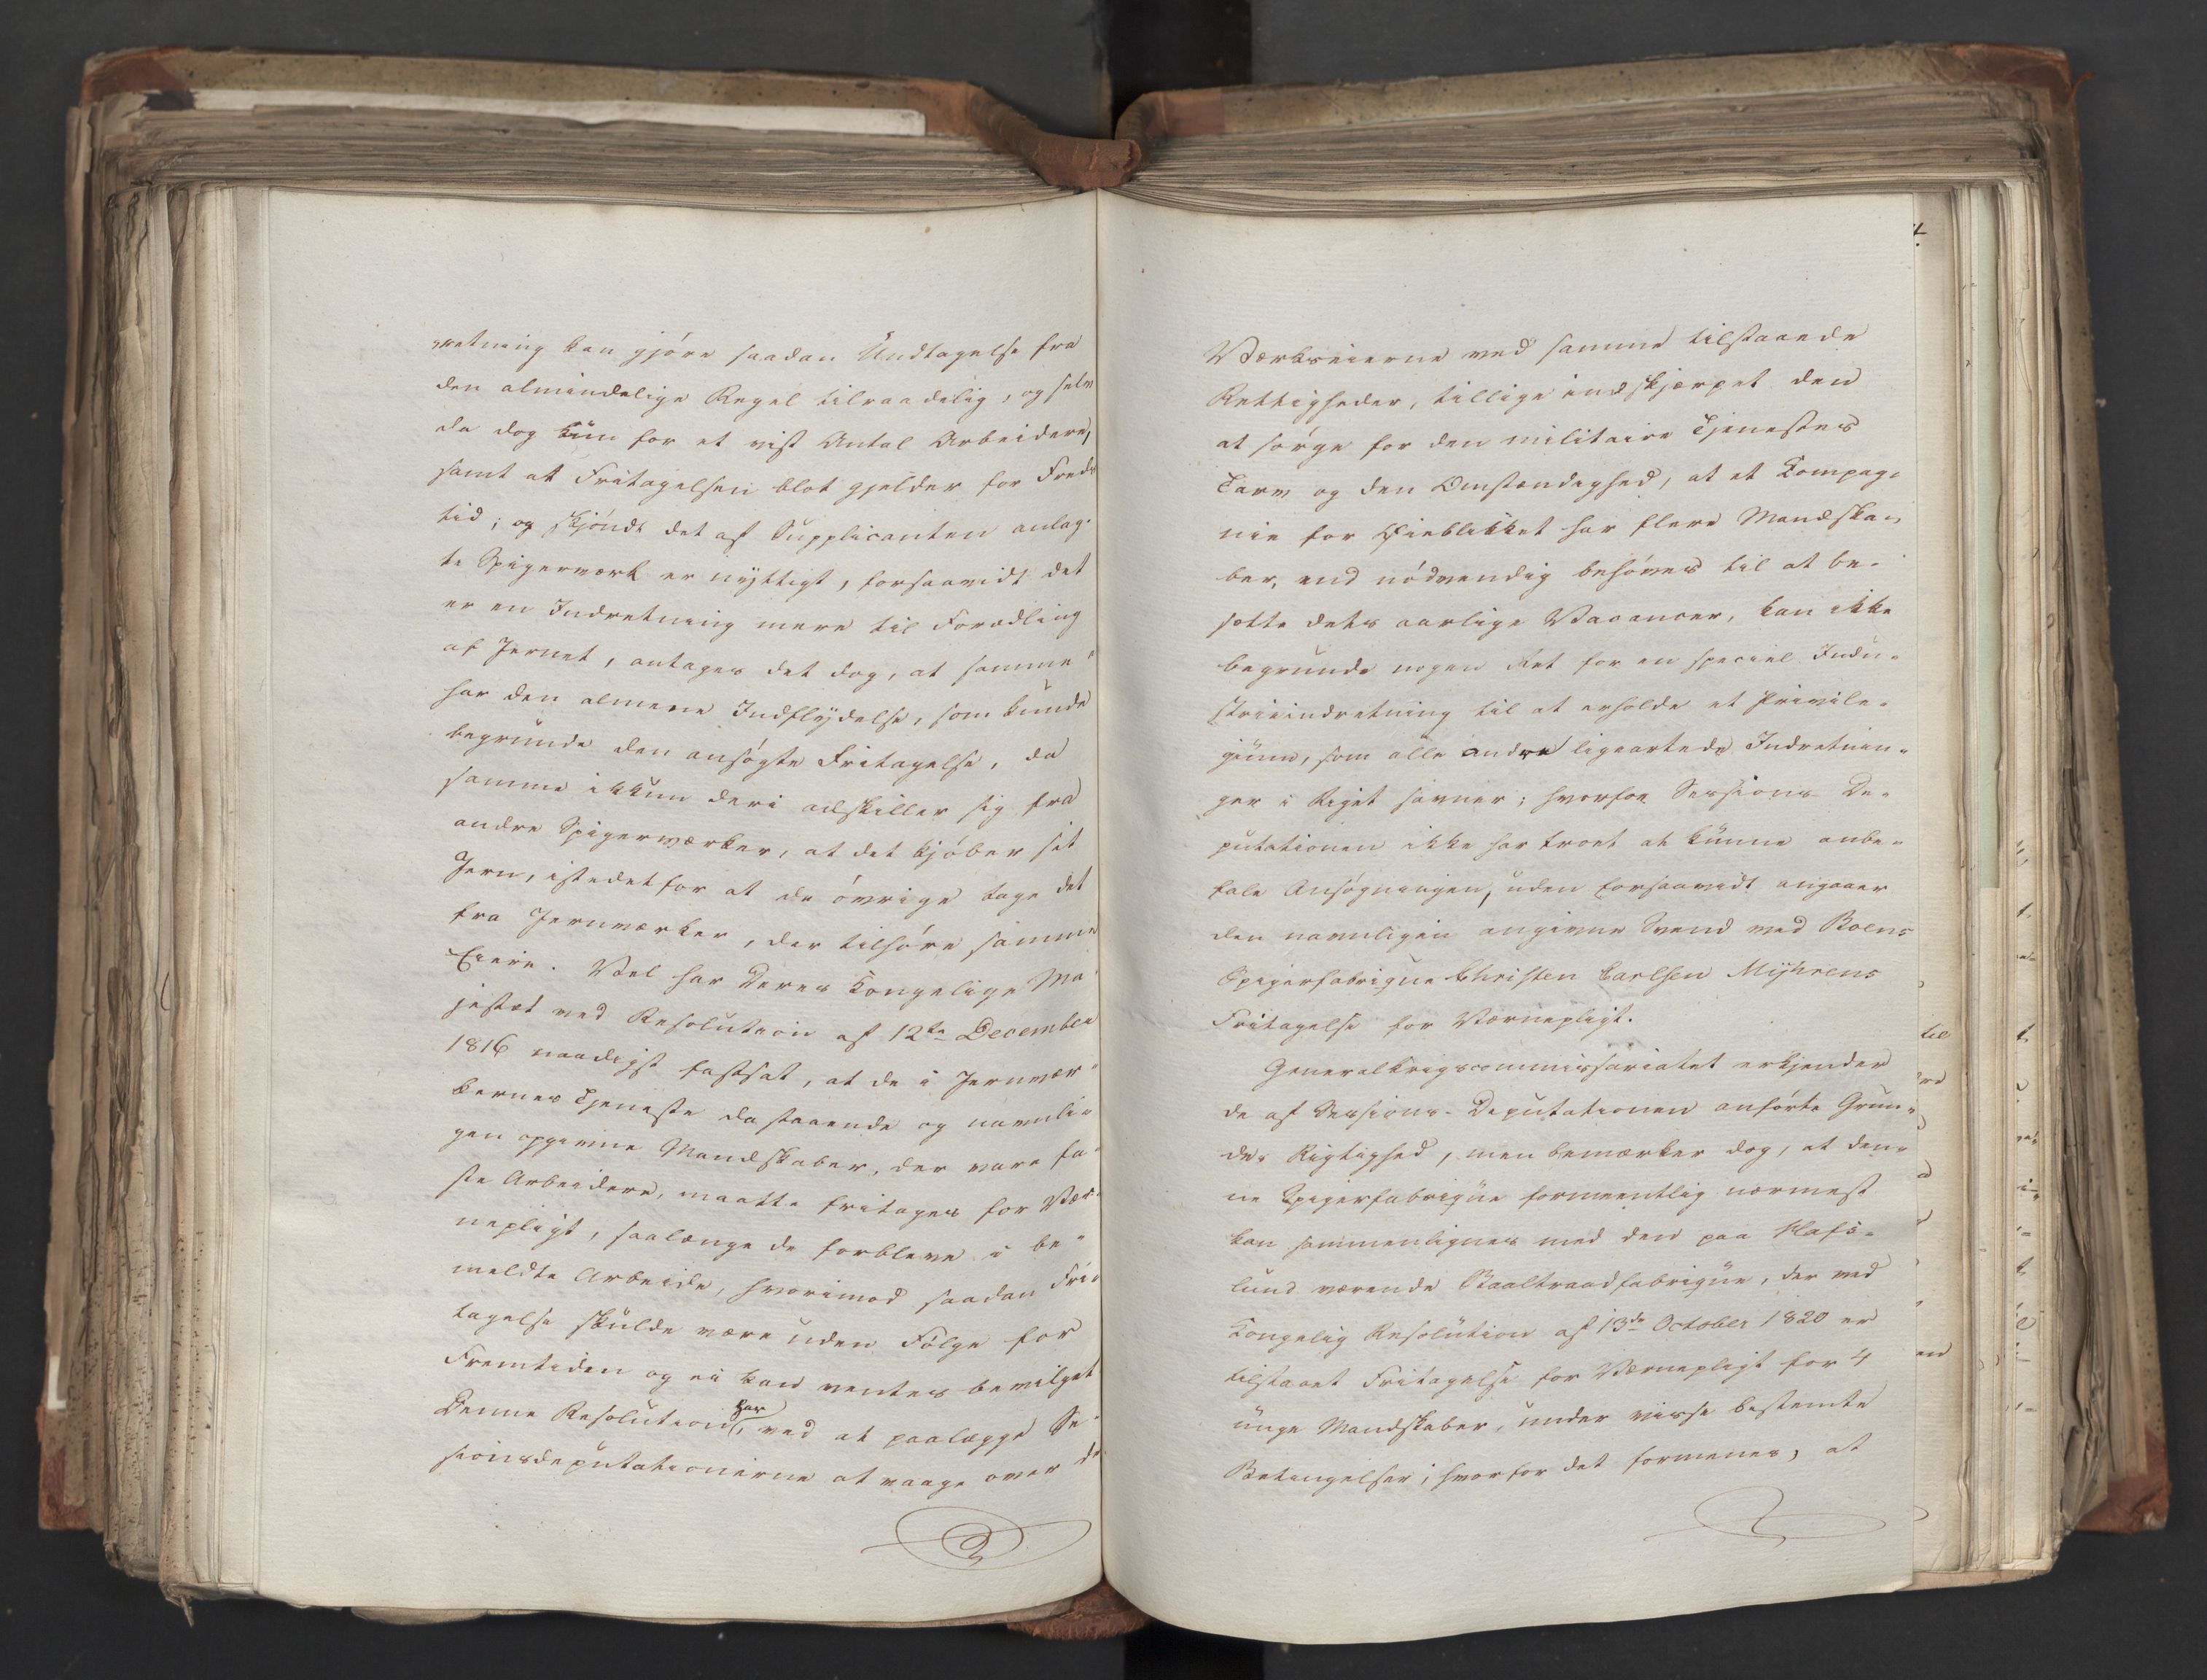 retning kan gjöre saadan Undtagelse fra
den almindelige Regel tilraadelig, og selv
da dog kun for et vist Antal Arbeidere,
samt at Fritagelsen blot gjelder for Freds
tid; og skjöndt det af Supplicanten anlag-
te Spigerværk er nyttigt, forsaavidt det
er en Indretning mere til Forædling
af Jernet, antages det dog, at samme ei
har den almene Indflydelse, som kunde
begrunde den ansögte Fritagelse, da
samme ikkun deri adskiller sig fra
andre Spigerværker, at det kjöber sit
Jern, istedetfor at de övrige tage det
fra Jernværker, der tilhöre samme
Eiere. Vel har Deres Kongelige Ma-
jestæt ved Resolution af 12te December
1816 naadigst fastsat, at de i Jernvær-
kernes Tjeneste da staaende og navnli-
gen opgivne Mandskaber, der vare fa-
ste Arbeidere, maatte fritages for Vær-
nepligt, saalænge de forbleve i be-
meldte Arbeide, hvorimod saadan Fri-
tagelse skulde være uden Fölge for
Fremtiden og ei kan ventes bevilget
Denne Resolution har, ved at paalægge Se-
sionsdeputationerne at vaage over de
Værkseierne ved samme tilstaaede
Rettigheder, tillige indskjærpet den
at sörge for den militaire Tjenestes
Tarv og den Omstændighed, at et Compag-
nie for Öieblikket har flere Mandska-
ber, end nödvendig behöves til at be-
sætte dets aarlige Vacancer, kan ikke
begrunde nogen Ret for en speciel Indu-
strieindretning til at erholde et Privile-
gium, som alle andre ligeartede Indretnin-
ger i Riget savner; hvorfor Sessions De-
putationen ikke har troet at kunne anbe-
fale Ansögningen, uden forsaavidt angaaer
den navnligen angivne Svend ved Boens
Spigerfabrique Christen Carlsen Myhrens
Fritagelse for Værnepligt.
Generalkrigscommissariatet erkjender
de af Sessions-Deputationen anförte Grun-
des Rigtighed, men bemærker dog, at den-
ne Spigerfabrique formeentlig nærmest
kan sammenlignes med den paa Hafs-
lund værende Staaltraadfabrique, der ved
Kongelig Resolution af 13de October 1820 er
tilstaaet Fritagelse for Værnepligt for 4
unge Mandskaber, under visse bestemte
Betingelser; hvorfor det formenes, at